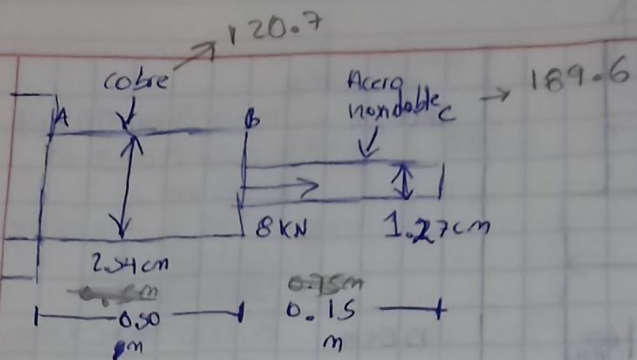 120.7
cobre
Acero
inoxidable
189.6
A
B
C
8 KN
1.27cm
2.54cm
0.75m
0.50
m
0.15
m